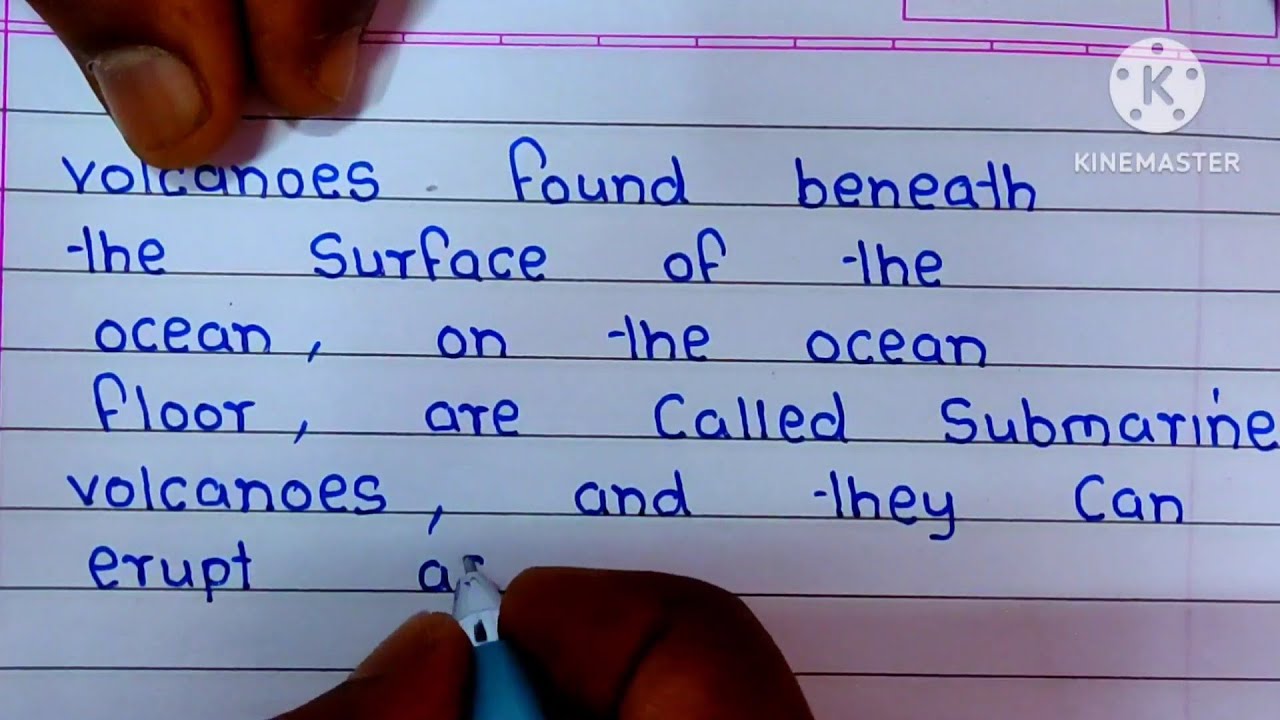 K
KINEMASTER
volcanoes found beneath
the surface of the
ocean, on the ocean
floor, are called submarine
volcanoes, and they can
erupt